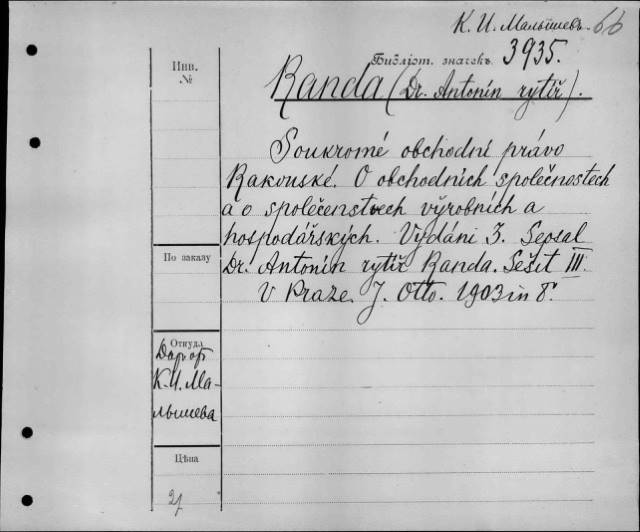 К. И. Малышевъ. 66
Библіот. значекъ 3935.
Инв.
№
Randa (Dr. Antonín rytíř).
Soukromé obchodní právo
Rakouské. O obchodních společnostech
a o společenstvech výrobních a
hospodářských. Vydání 3. Sepsal
По заказу
Dr. Antonín rytíř Randa. Sešit III.
V Praze. J. Otto. 1903 in 8º.
Откуда
Дар от
К. И. Ма-
лышева
Цѣна